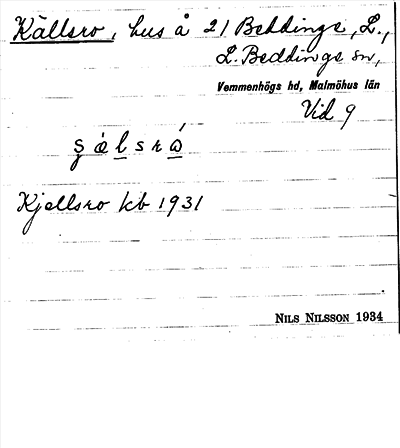 Källsro, hus å 21 Beddinge, L.,
L. Beddinge sn,
Vemmenhögs hd, Malmöhus län
Vid 9
Kjellsro kb 1931
NILS NILSSON 1934